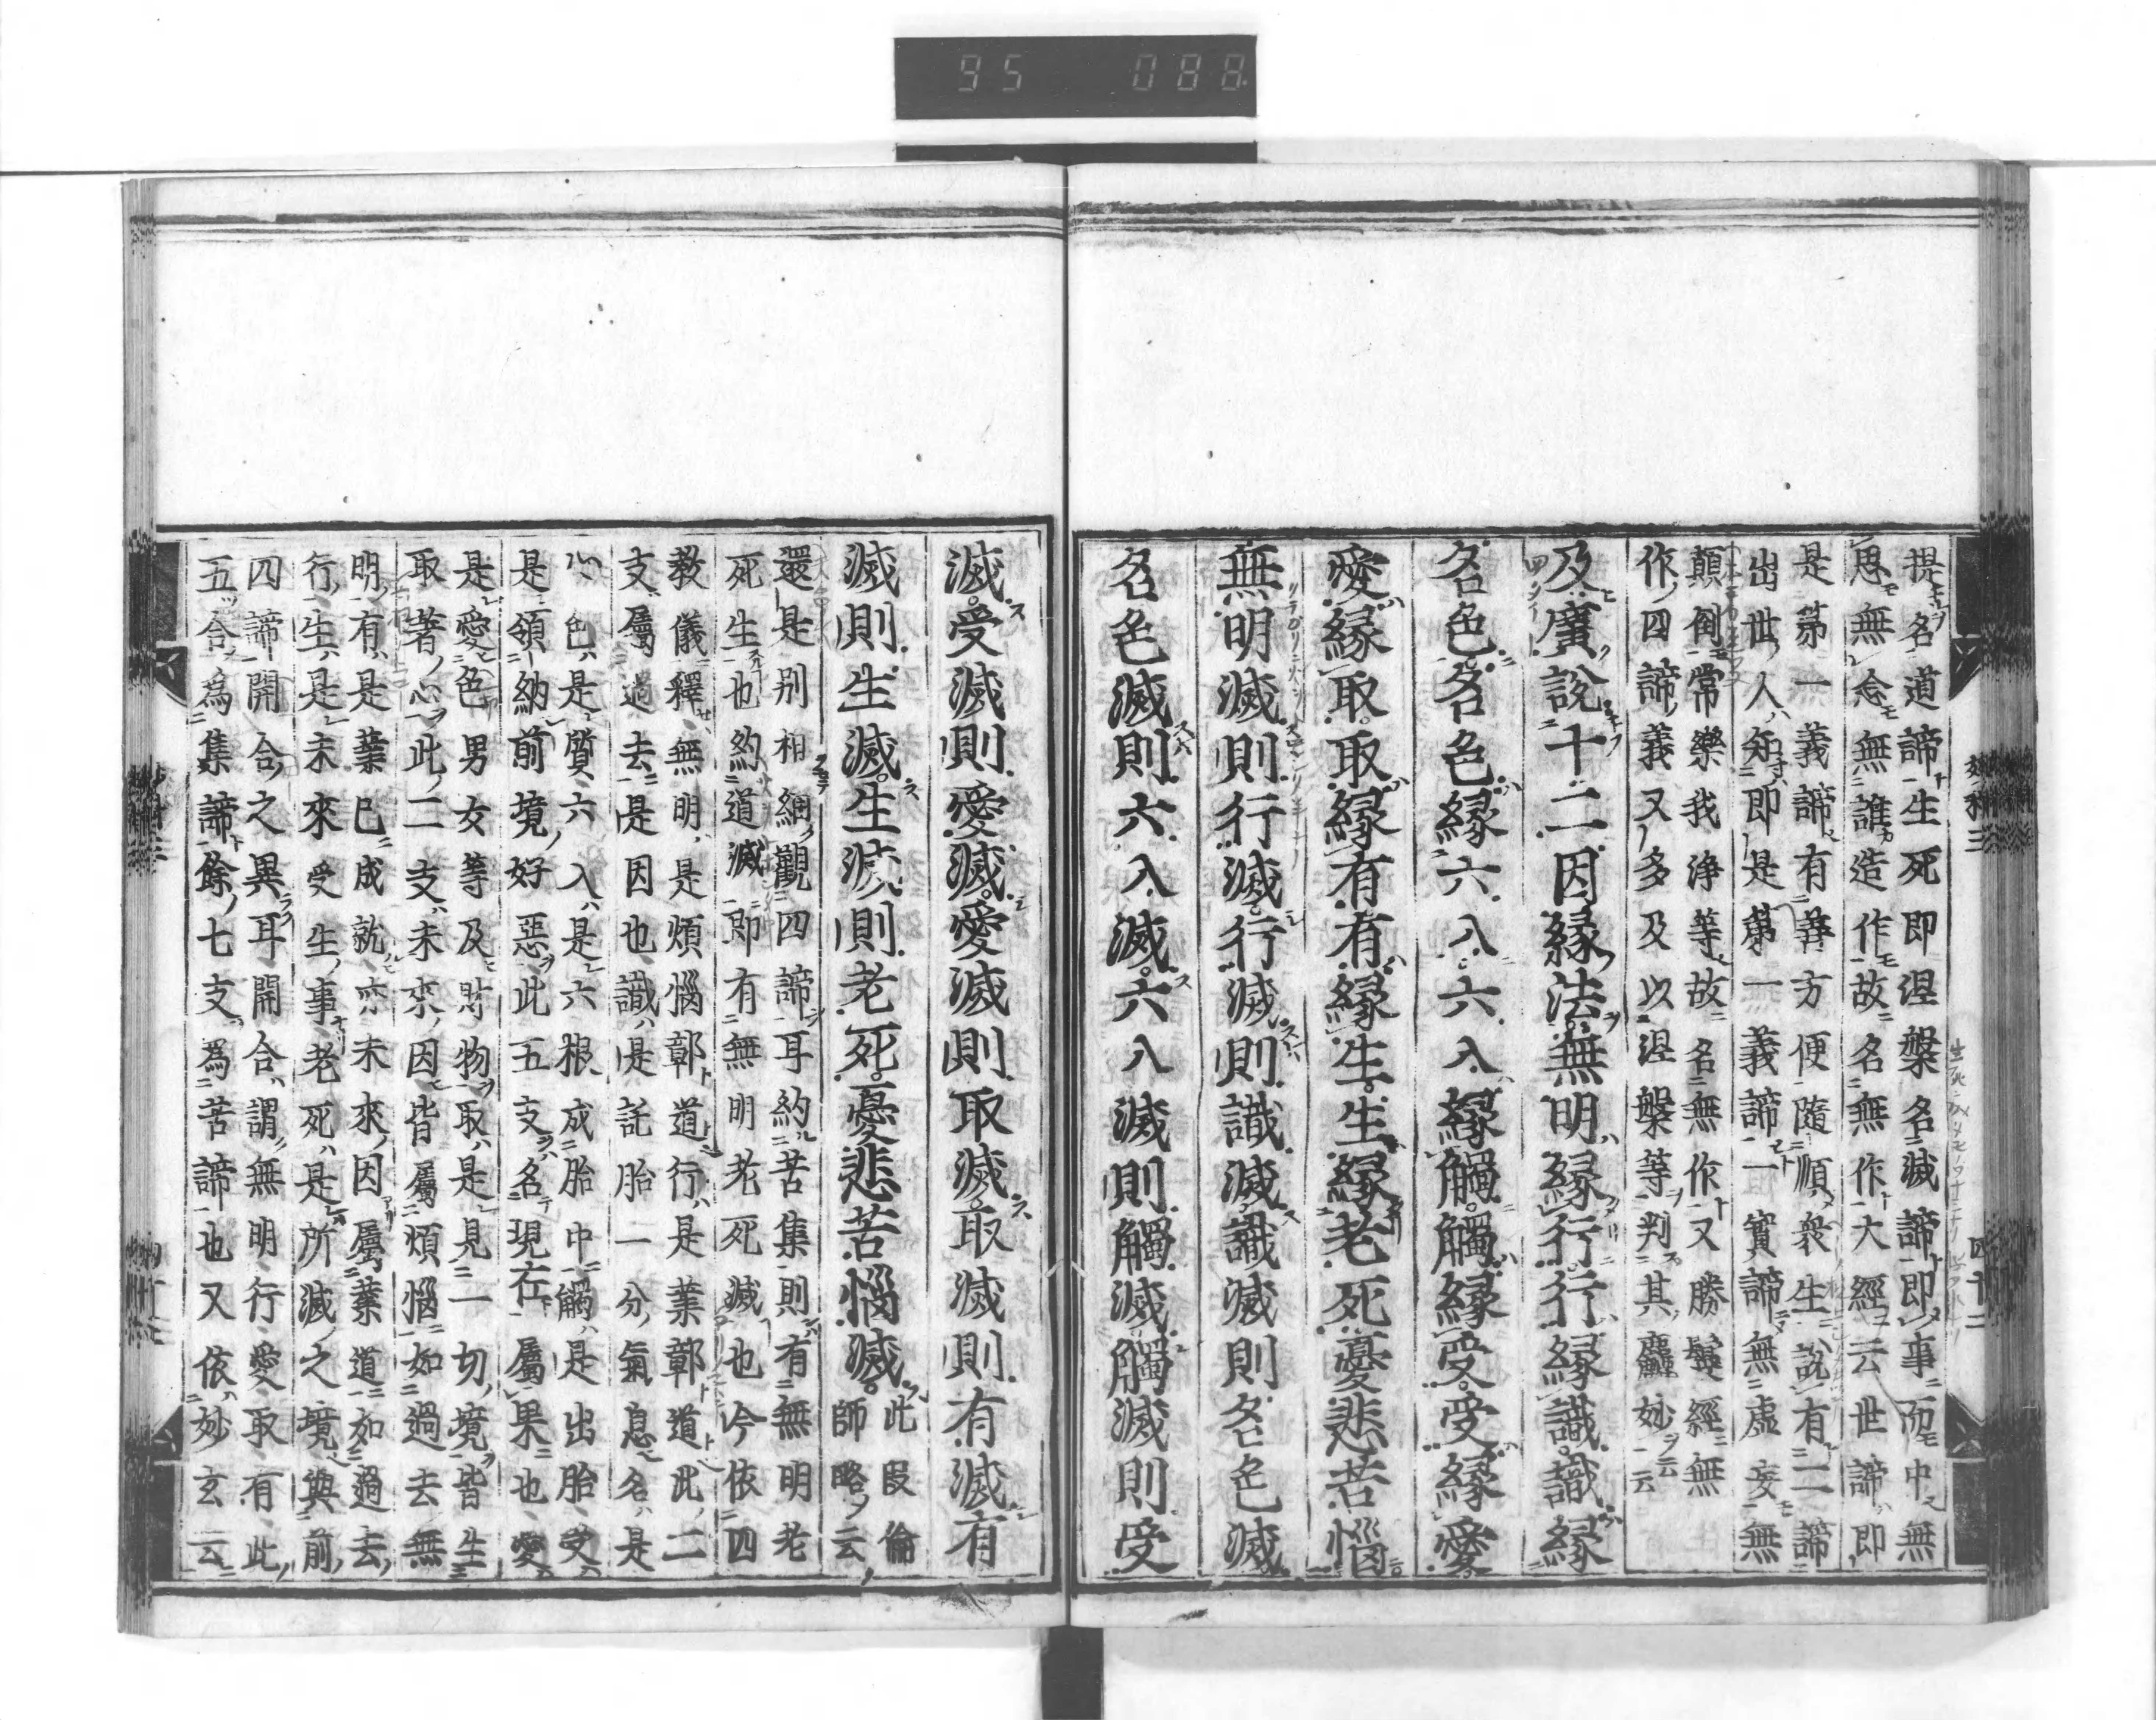 95 088
提名道諦生死即涅槃名滅諦即事而中無
思無念無誰造作故名無作大經云世諦即
是第一義諦有善方便隨順衆生說有二諦
出世人知即是第一義諦一實諦無虛妄無
顛倒常樂我淨等故名無作又勝鬘經無
作四諦義又多及以涅槃等判其麤妙云
及廣說十二因緣法無明緣行行緣識識緣
名色名色緣六入六入緣觸觸緣受受緣愛
愛緣取取緣有有緣生生緣老死憂悲苦惱
無明滅則行滅行滅則識滅識滅則名色滅
名色滅則六入滅六入滅則觸滅觸滅則受
滅受滅則愛滅愛滅則取滅取滅則有滅有
滅則生滅生滅則老死憂悲苦惱滅此段倫
師略云
還是別相細觀四諦耳約苦集則有無明老
死生也約道滅即有無明老死滅也今依四
教儀釋無明是煩惱鄣道行是業鄣道此二
支屬過去是因也識是託胎一分氣息名是
心色是質六入是六根成胎中觸是出胎受
是領納前境好惡此五支名現在屬果也愛
是愛色男女等及財物取是見一切境皆生
取著心此二支未來因皆屬煩惱如過去無
明有是業已成就亦未來因屬業道如過去
行生是未來受生事老死是所滅之境與前
四諦開合之異耳開合謂無明行愛取有此
五合為集諦餘七支為苦諦也又依妙玄云